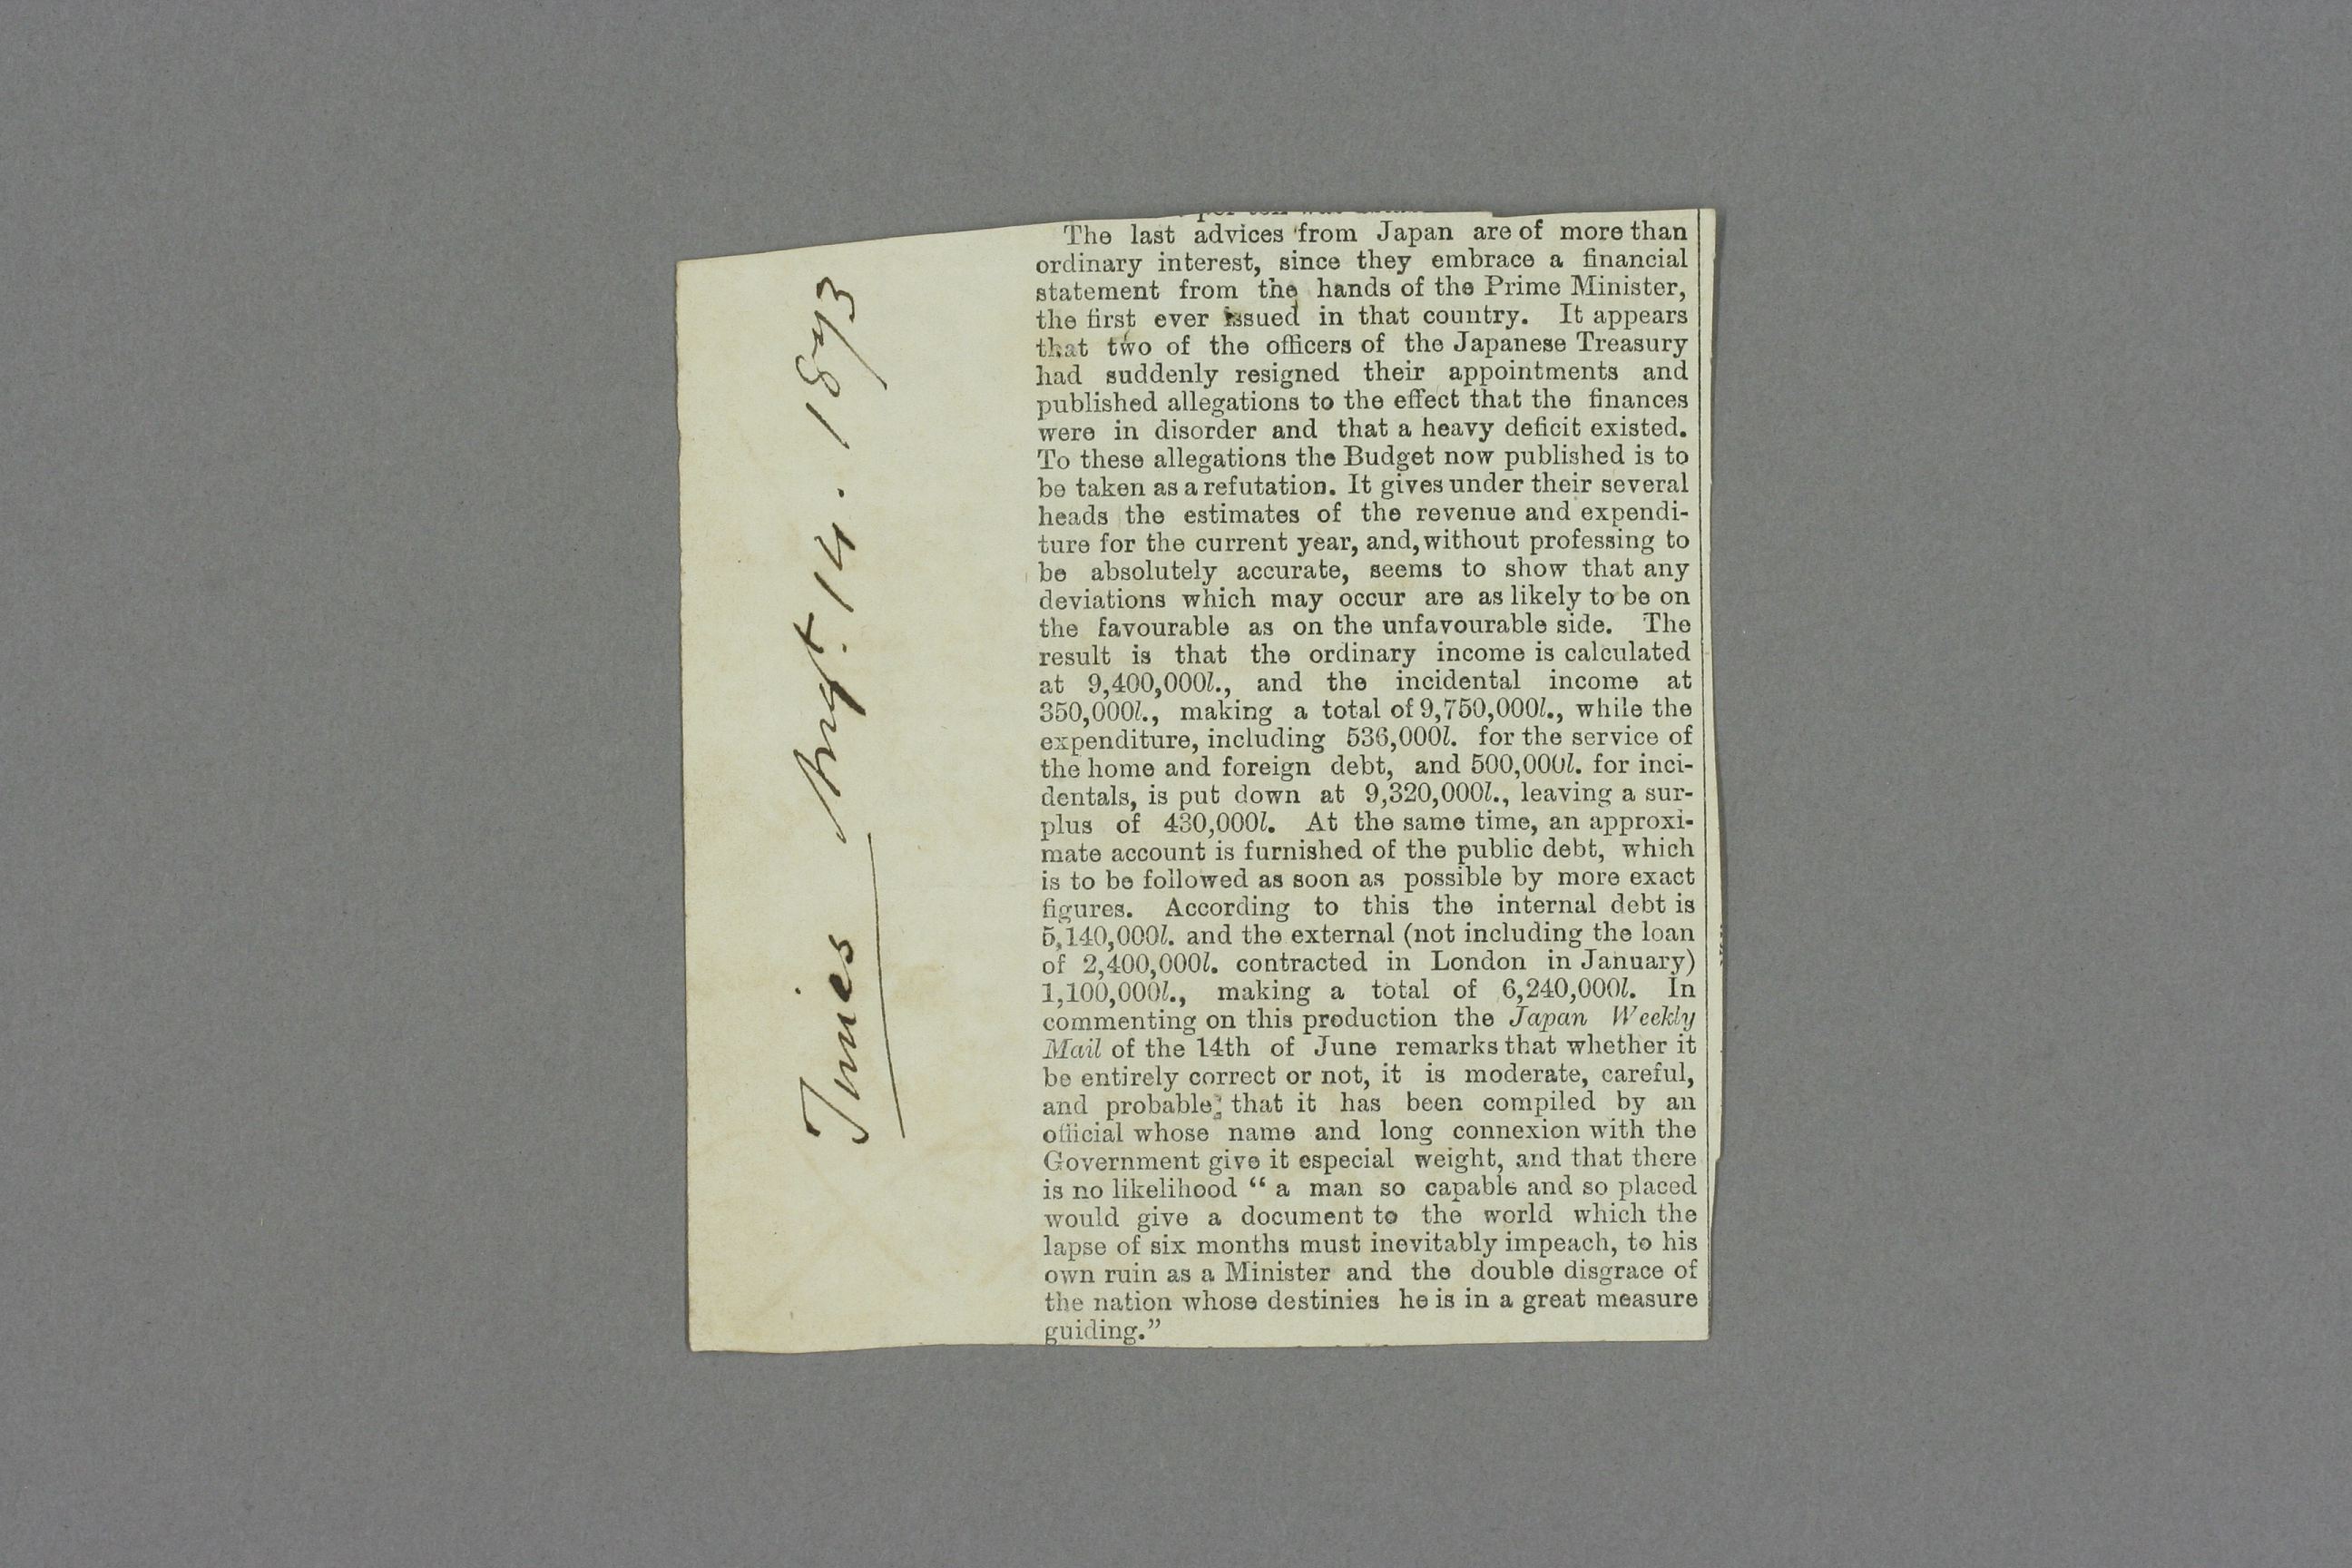 Times Augt. 14. 1873
The last advices from Japan are of more than
ordinary interest, since they embrace a financial
statement from the hands of the Prime Minister,
the first ever issued in that country. It appears
that two of the officers of the Japanese Treasury
had suddenly resigned their appointments and
published allegations to the effect that the finances
were in disorder and that a heavy deficit existed.
To these allegations the Budget now published is to
be taken as a refutation. It gives under their several
heads the estimates of the revenue and expendi-
ture for the current year, and, without professing to
be absolutely accurate, seems to show that any
deviations which may occur are as likely to be on
the favourable as on the unfavourable side. The
result is that the ordinary income is calculated
at 9,400,000l., and the incidental income at
350,000l., making a total of 9,750,000l., while the
expenditure, including 536,000l. for the service of
the home and foreign debt, and 500,000l. for inci-
dentals, is put down at 9,320,000l., leaving a sur-
plus of 430,000l. At the same time, an approxi-
mate account is furnished of the public debt, which
is to be followed as soon as possible by more exact
figures. According to this the internal debt is
5,140,000l. and the external (not including the loan
of 2,400,000l. contracted in London in January)
1,100,000l., making a total of 6,240,000l. In
commenting on this production the Japan Weekly
Mail of the 14th of June remarks that whether it
be entirely correct or not, it is moderate, careful,
and probable; that it has been compiled by an
official whose name and long connexion with the
Government give it especial weight, and that there
is no likelihood “ a man so capable and so placed
would give a document to the world which the
lapse of six months must inevitably impeach, to his
own ruin as a Minister and the double disgrace of
the nation whose destinies he is in a great measure
guiding.”